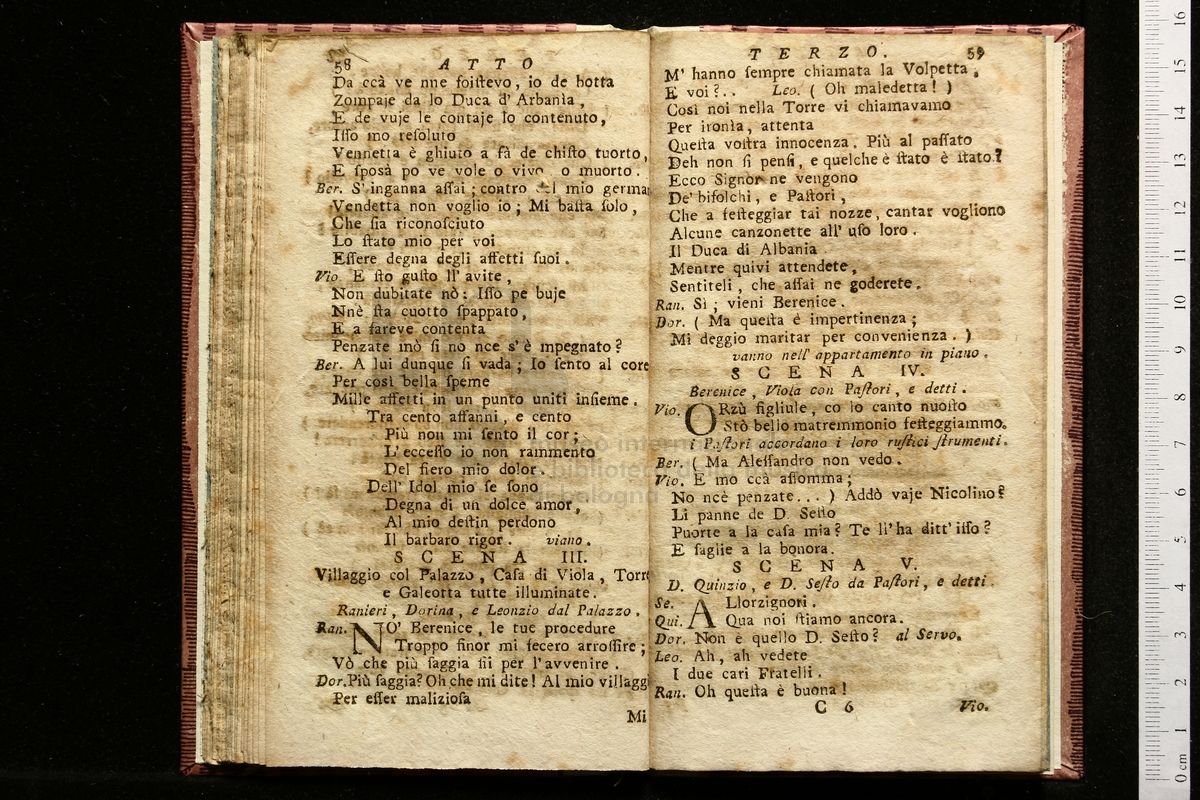 58 ATTO
Da ccà ve nne foiſtevo, io de botta
Zompaje da lo Duca d' Arbanìa,
E de vuje le contaje lo contenuto,
Iſſo mo reſoluto
Vennetta è ghiuto a fà de chiſto tuorto,
E ſposà po ve vole o vivo o muorto.
Ber. S' inganna aſſai; contro del mio germa
Vendetta non voglio io; Mi baſta ſolo,
Che ſia riconoſciuto
Lo ſtato mio per voi
Eſſere degna degli affetti ſuoi.
Vio. E ſto guſto ll' avite,
Non dubitate nò: Iſſo pe buje
Nnè ſta cuotto ſpappato,
E a fareve contenta
Penzate mò ſi no nce s' è mpegnato?
Ber. A lui dunque ſi vada; Io ſento al core
Per così bella ſpeme
Mille affetti in un punto uniti inſieme.
Tra cento affanni, e cento
Più non mi ſento il cor;
L' ecceſſo io non rammento
Del fiero mio dolor.
Dell' Idol mio ſe ſono
Degna di un dolce amor,
Al mio deſtin perdono
Il barbaro rigor. viano.
SCENA III.
Villaggio col Palazzo, Caſa di Viola, Torre
e Galeotta tutte illuminate.
Ranieri, Dorina, e Leonzio dal Palazzo.
Ran. NO' Berenice, le tue procedure
Troppo finor mi fecero arroſſire;
Vò che più ſaggia ſii per l' avvenire.
Dor. Più ſaggia? Oh che mi dite! Al mio villagg
Per eſſer malizioſa
Mi
TERZO. 59
M' hanno ſempre chiamata la Volpetta,
E voi?.. Leo. ( Oh maledetta! )
Così noi nella Torre vi chiamavamo
Per ironìa, attenta
Queſta voſtra innocenza. Più al paſſato
Deh non ſi penſi, e quelche è ſtato è ſtato.?
Ecco Signor ne vengono
De' bifolchi, e Paſtori,
Che a feſteggiar tai nozze, cantar vogliono
Alcune canzonette all' uſo loro.
Il Duca di Albania
Mentre quivi attendete,
Sentiteli, che aſſai ne goderete.
Ran. Sì; vieni Berenice.
Dor. ( Ma queſta è impertinenza;
Mi deggio maritar per convenienza. )
vanno nell' appartamento in piano.
SCENA IV.
Berenice, Viola con Paſtori, e detti.
Vio. ORzù figliule, co lo canto nuoſto
Stò bello matremmonio feſteggiammo.
i Paſtori accordano i loro ruſtici ſtrumenti.
Ber. ( Ma Aleſſandro non vedo.
Vio. E mo ccà aſſomma;
No ncè penzate... ) Addò vaje Nicolino?
Li panne de D. Seſto
Puorte a la caſa mia? Te ll' ha ditt' iſſo?
E ſaglie a la bonora.
SCENA V.
D. Quinzio, e D. Seſto da Paſtori, e detti.
Se. ALlorzignori.
Qui. Qua noi ſtiamo ancora.
Dor. Non è quello D. Seſto? al Servo.
Leo. Ah, ah vedete
I due cari Fratelli.
Ran. Oh queſta è buona!
C 6 Vio.